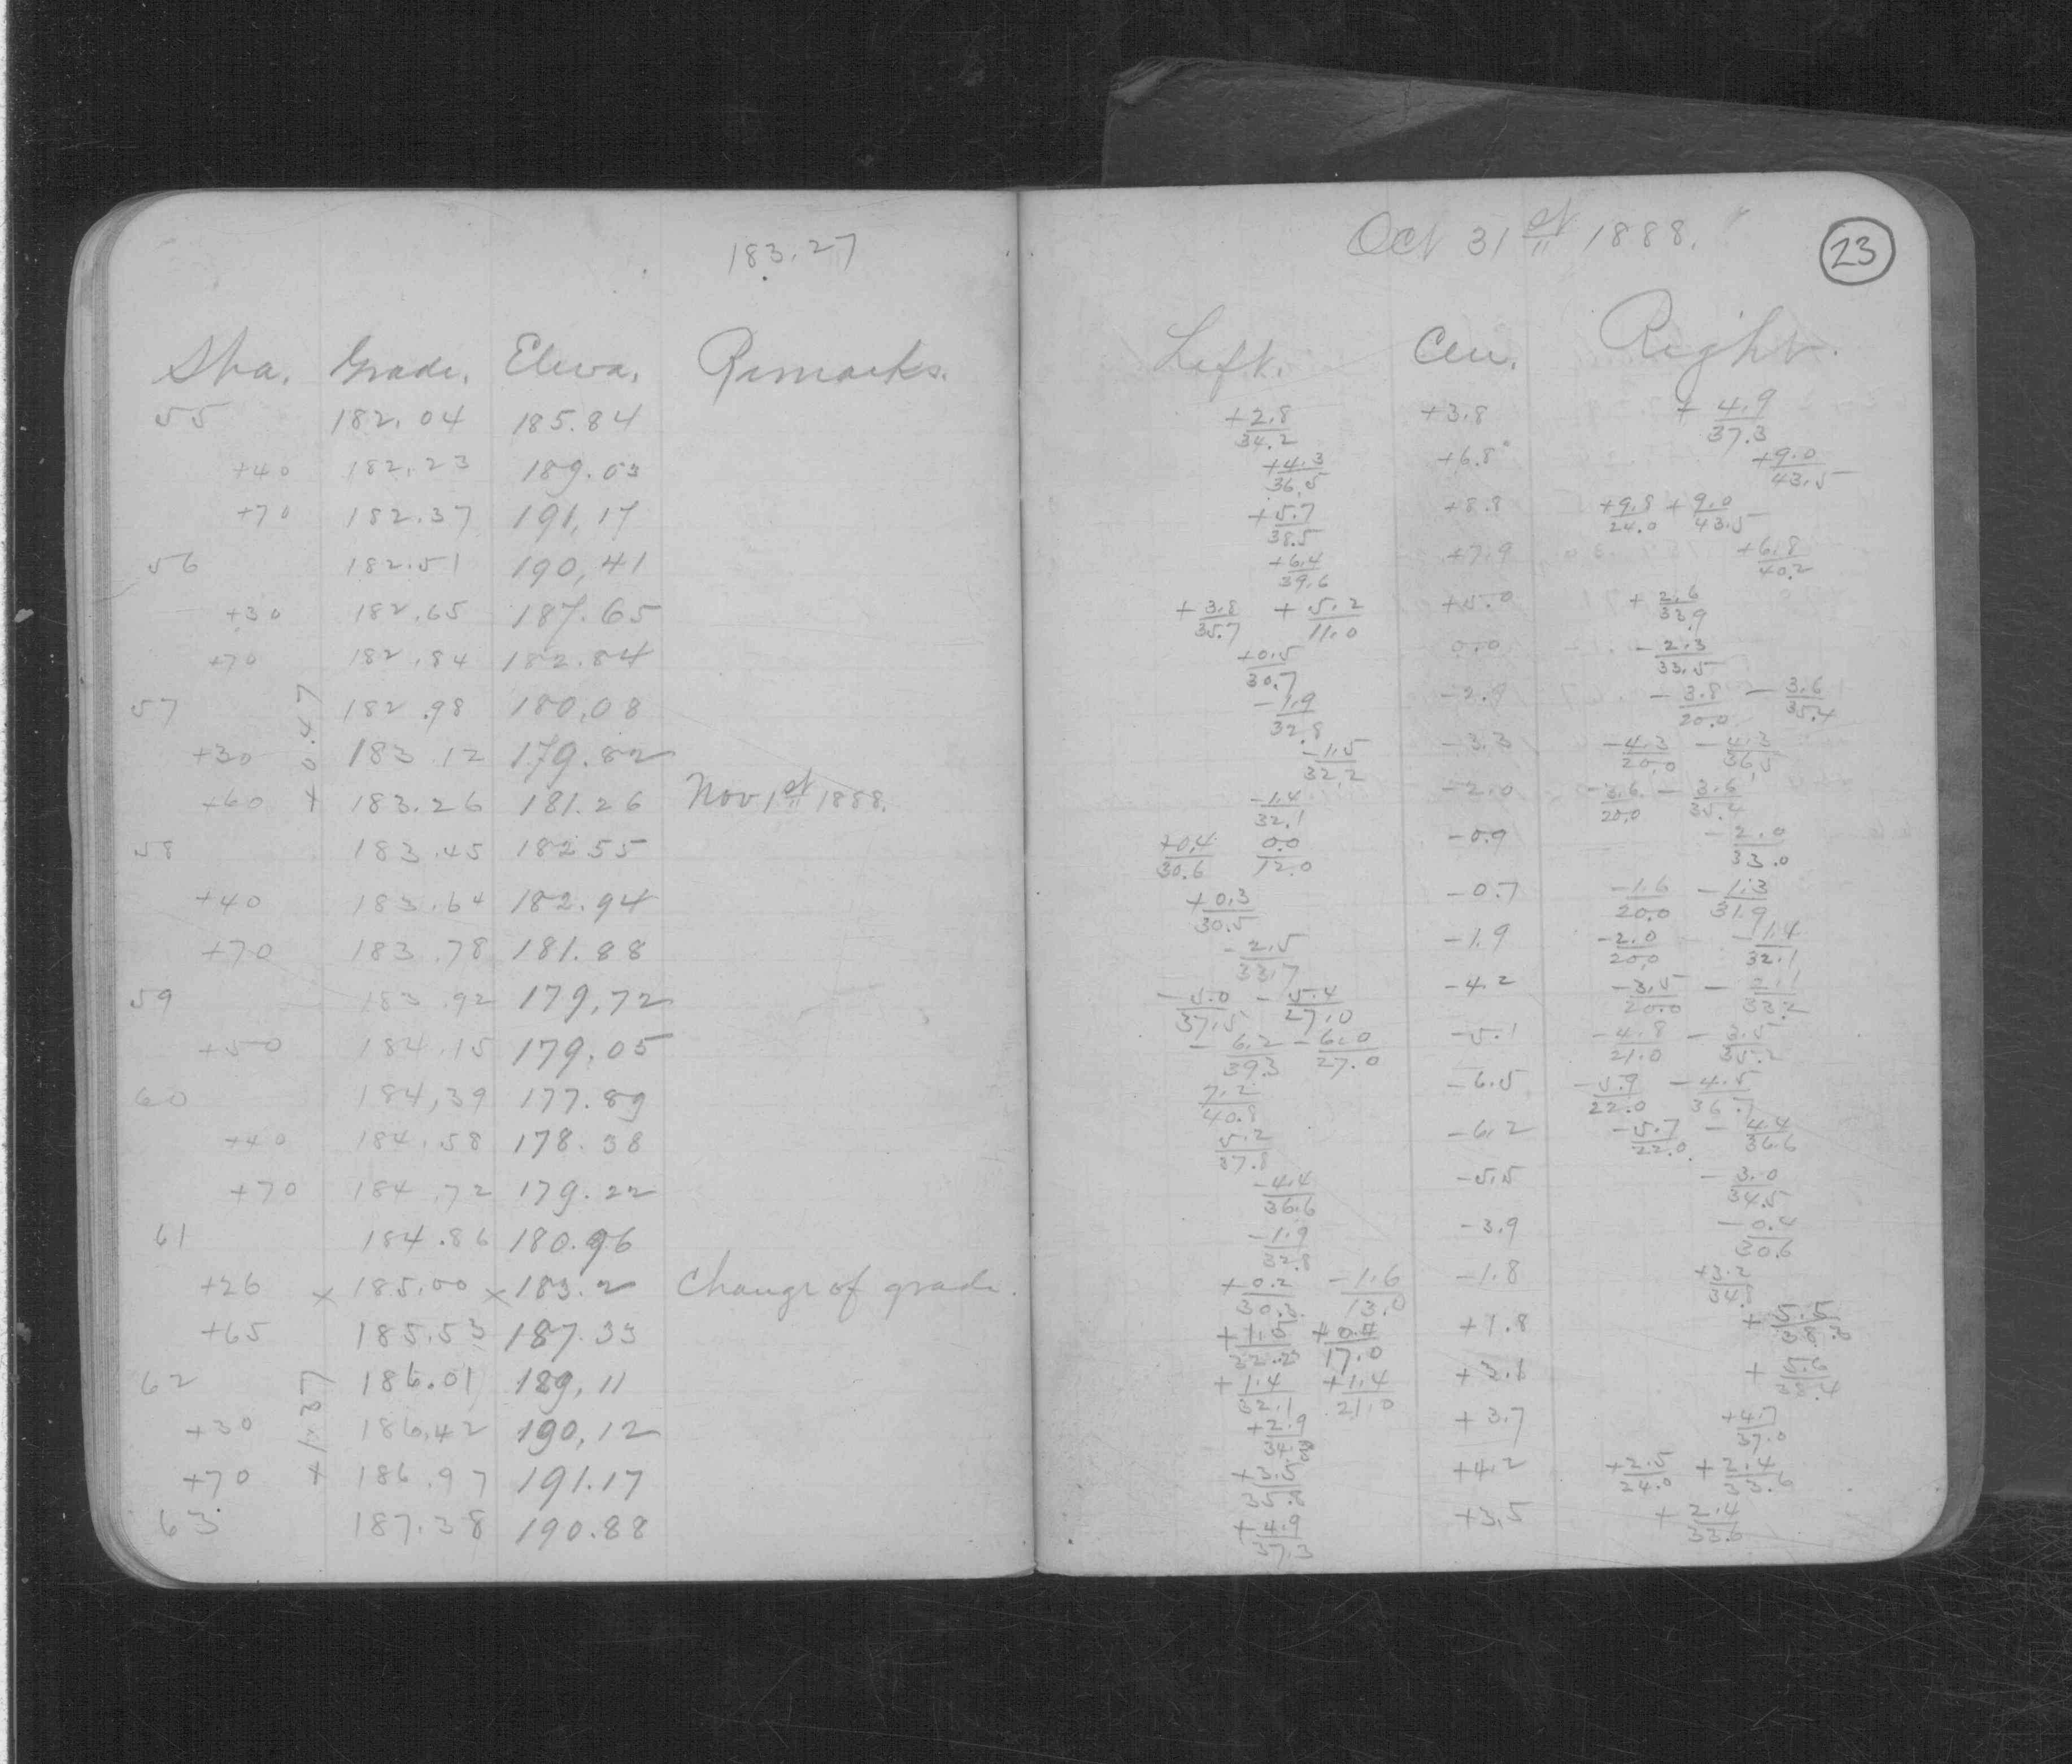 183.27
Sta. Grade. Eleva. Remarks.
55 182.04 185.84
+40 182.23 189.03
+70 182.37 191.17
56 182.51 190.41
+30 182.65 187.65
+70 182.84 182.84
57 182.98 180.08
+30 183.12 179.82
+60 183.26 181.26 Nov 1st 1888.
58 183.45 182.55
+40 183.64 182.94
+70 183.78 181.88
59 183.92 179.72
+50 184.15 179.05
60 184.39 177.89
+40 184.58 178.38
+70 184.72 179.22
61 184.86 180.96
+26 x 185.00 x 183.2 Change of grade.
+65 185.53 187.33
62 186.01 189.11
+30 186.42 190.12
+70 186.97 191.17
63 187.38 190.88
+ 0.47
+ 1.37
Oct 31st 1888.
23
Left. Cen. Right.
+2.8/34.2 +3.8 +4.9/37.3
+4.3/36.5 +6.8 +9.0/43.5
+5.7/38.5 +8.8 +9.8/24.0 +9.0/43.5
+6.4/39.6 +7.9 +6.8/40.2
+3.8/35.7 +5.2/11.0 +5.0 +2.6/33.9
+0.5/30.7 0.0 -2.3/33.5
-1.9/32.8 -2.9 -3.8/20.0 -3.6/35.4
-1.5/32.2 -3.3 -4.3/20.0 -4.3/36.5
-1.4/32.1 -2.0 -3.6/20.0 -3.6/35.4
+0.4/30.6 0.0/12.0 -0.9 -2.0/33.0
+0.3/30.5 -0.7 -1.6/20.0 -1.3/31.9
-2.5/33.7 -1.9 -2.0/20.0 -1.4/32.1
-5.0/37.5 -5.4/27.0 -4.2 -3.5/20.0 -2.1/33.2
-6.2/39.3 -6.0/27.0 -5.1 -4.8/21.0 -3.5/35.2
7.2/40.8 -6.5 -5.9/22.0 -4.5/36.7
5.2/37.8 -6.2 -5.7/22.0 -4.4/36.6
-4.4/36.6 -5.5 -3.0/34.5
-1.9/32.8 -3.9 -0.4/30.6
+0.2/30.3 -1.6/13.0 -1.8 +3.2/34.8
+1.5/32.2 +0.4/17.0 +1.8 +5.5/38.3
+1.4/32.1 +1.4/21.0 +3.1 +5.6/38.4
+2.9/34.3 +3.7 +4.7/37.0
+3.5/35.8 +4.2 +2.5/24.0 +2.4/33.6
+4.9/37.3 +3.5 +2.4/33.6